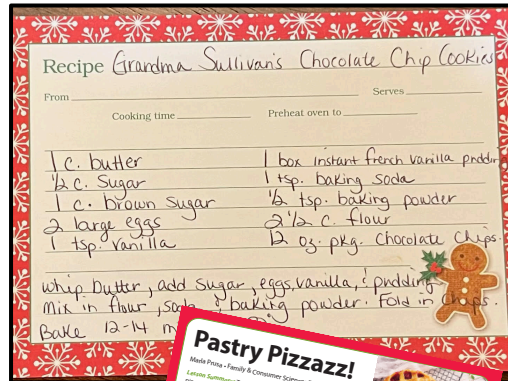 Recipe Grandma Sullivan's Chocolate Chip Cookies
From Serves
Cooking time Preheat oven to
1 c. butter
½ c. Sugar
1 c. brown sugar
2 large eggs
1 tsp. vanilla
1 box instant french vanilla
1 tsp. baking soda
½ tsp. baking powder
2 ½ c. flour
12 oz. pkg. Chocolate Chips.
whip butter, add sugar, eggs, vanilla, ! pudding
Mix in flour, soda baking powder. Fold in Chips.
Bake 12-14
Pastry Pizzazz!
Family & Consumer
Lesson